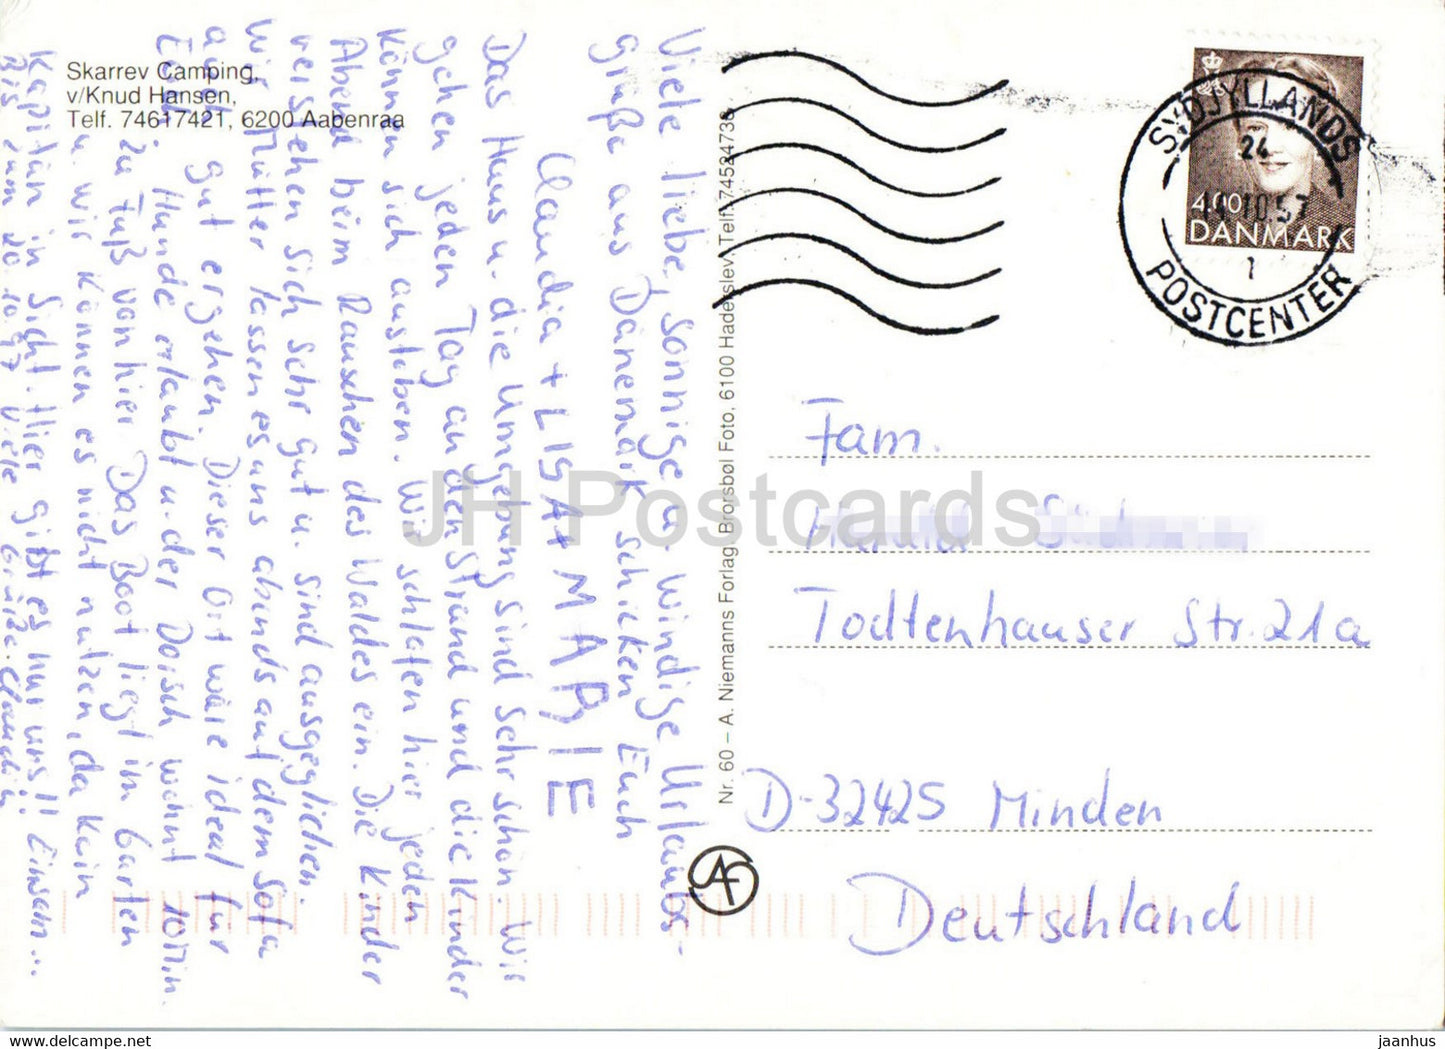 Skarrev Camping,
v/Knud Hansen,
Telf. 74617421, 6200 Aabenraa
Viele liebe, sonnige u. windige Urlaubs-
grüße aus Dänemark schicken Euch
Claudia + LISA + MARIE
Das Haus u. die Umgebung sind sehr schön. Wir
gehen jeden Tag an den Strand und die Kinder
können sich austoben. Wir schlafen hier jeden
Abend beim Rauschen des Waldes ein. Die Kinder
verstehen sich sehr gut u. sind ausgeglichen.
Wir Mütter lassen es uns abends auf dem Sofa
auch gut ergehen. Dieser Ort wäre ideal für
Euch, Hunde erlaubt u. der Dorsch wohnt 10 min.
zu Fuß von hier. Das Boot liegt im Garten
u. wir können es nicht nutzen, da kein
Kapitän in Sicht. Hier gibt es nur uns!! Einsam...
Bis zum 20.10.97 Viele Grüße Claudia
Nr. 60 – A. Niemanns Forlag. Brorsbøl Foto, 6100 Haderslev. Telf. 74524738
SYDJYLLANDS
24
DANMARK
4.00
1
POSTCENTER
Fam.
Harald
Todtenhauser Str. 21a
D-32425 Minden
Deutschland
JH Postcards
www.delcampe.net
jaanhus